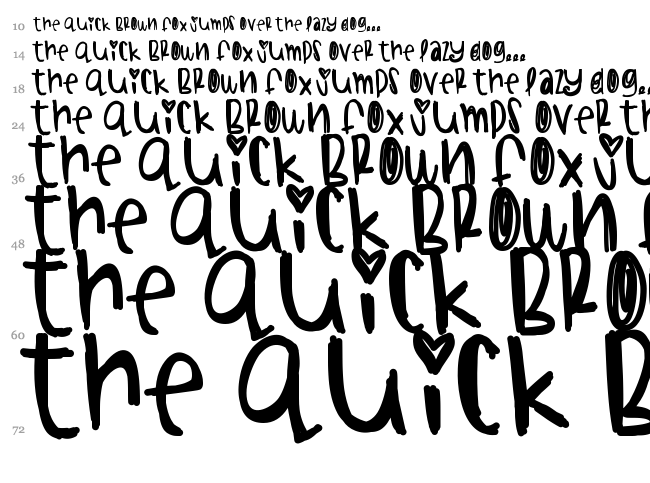 10 the quick brown fox jumps over the lazy dog...
14 the quick brown fox jumps over the lazy dog...
18 the quick brown fox jumps over the lazy dog..
24 the quick brown fox jumps over th
36 the quick brown fox ju
48 the quick brown
60 the quick bro
72 the quick b